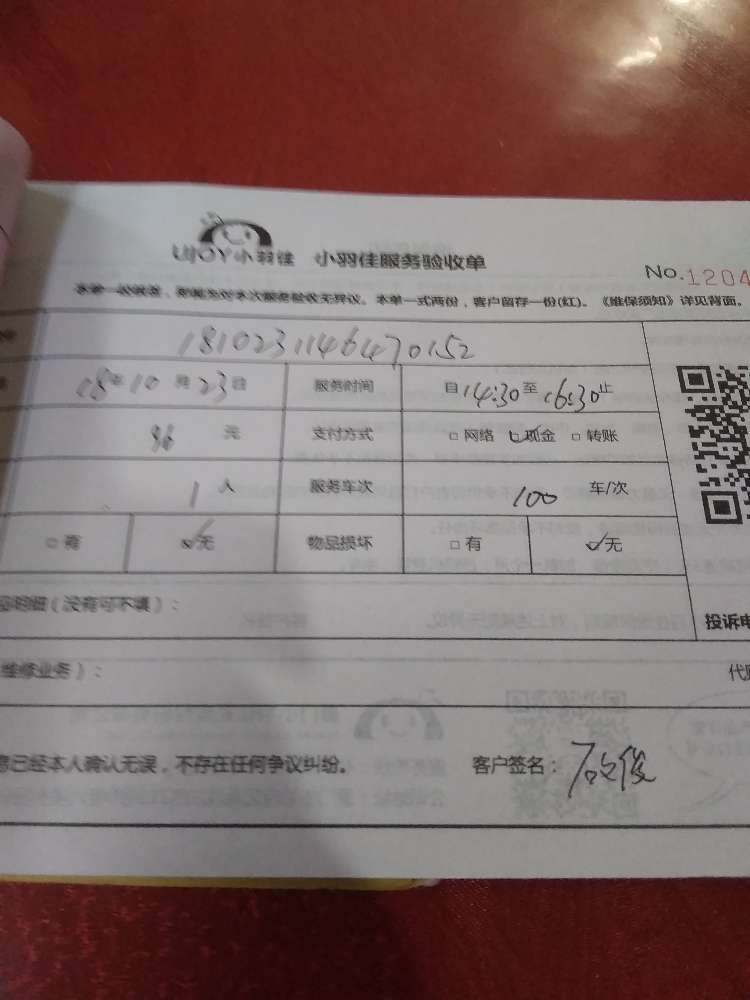 UJOY小羽佳 小羽佳服务验收单
No.1204
本单一经签署，即视为对本次服务验收无异议。本单一式两份，客户留存一份(红)。《维保须知》详见背面。
1810231146470152
18年10月23日 服务时间 自14:30至16:30止
96元 支付方式 □网络 ☑现金 □转账
1人 服务车次 100车/次
□有 ☑无 物品损坏 □有 ☑无
明细（没有可不填）：
投诉电
维修业务）：
已经本人确认无误，不存在任何争议纠纷。 客户签名：